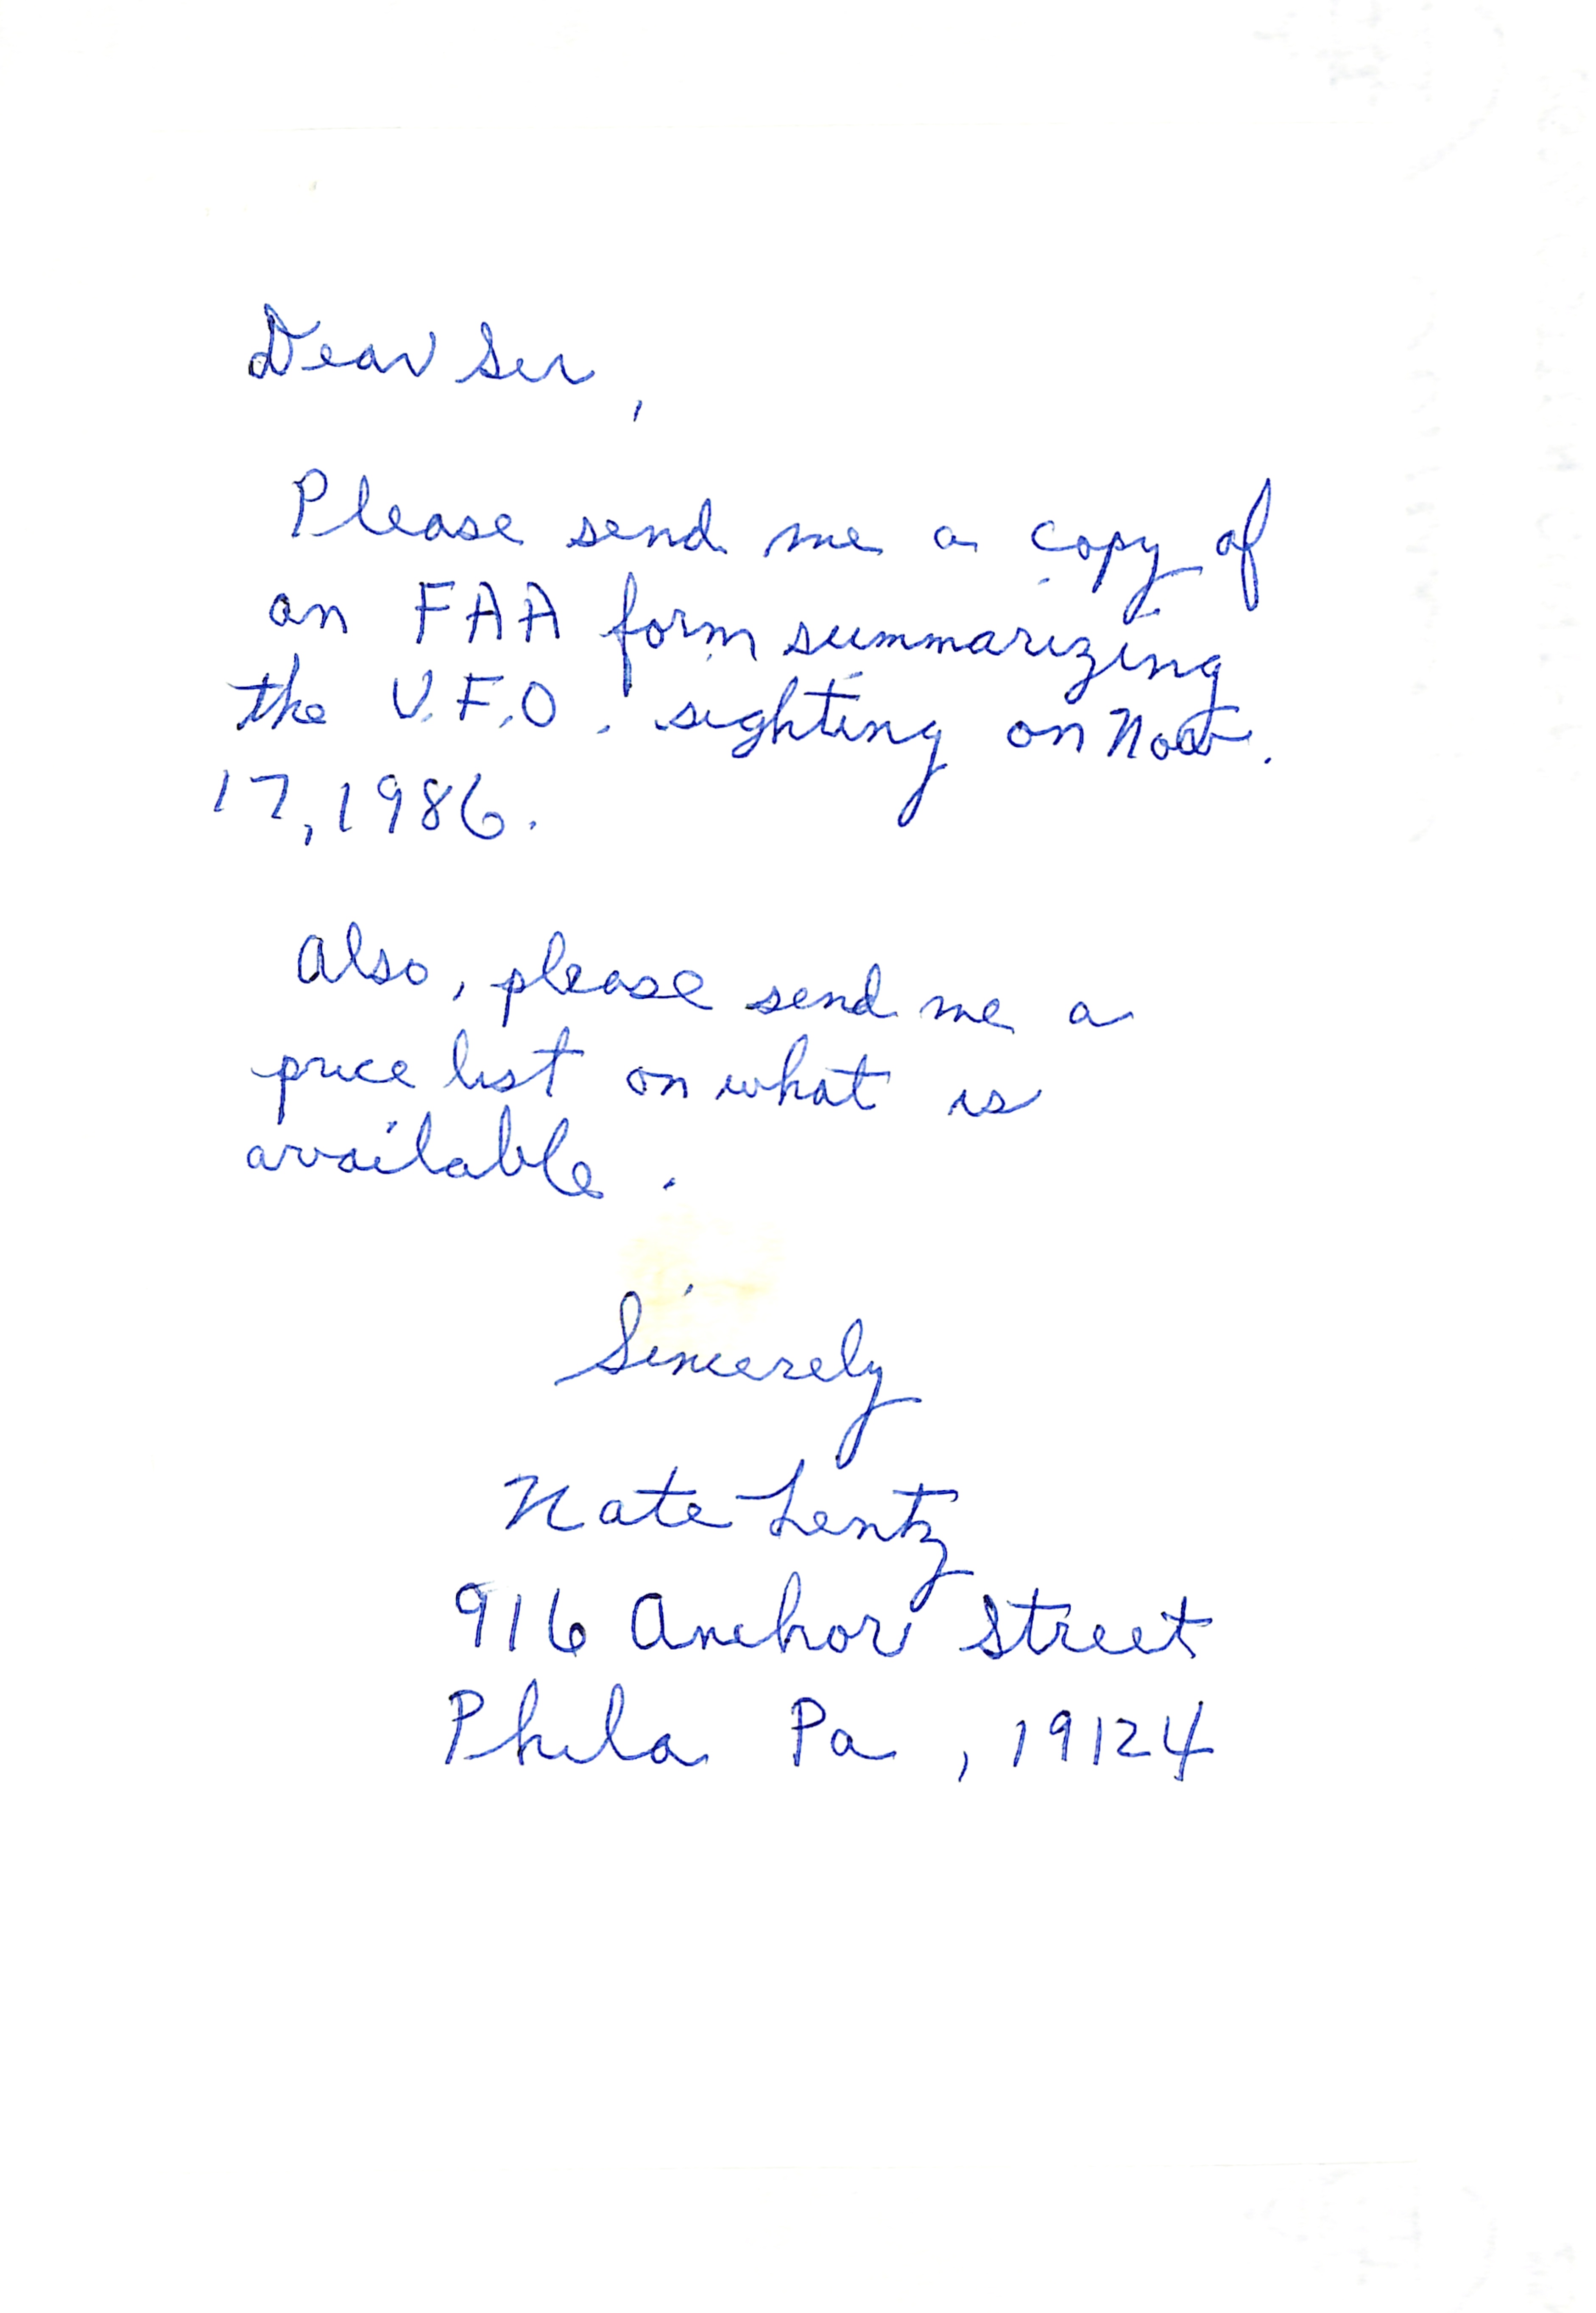 Dear Sir,
Please send me a copy of
an FAA form summarizing
the U.F.O. sighting on Nov.
17, 1986.
Also, please send me a
price list on what is
available.
Sincerely
Nate Lentz
916 Anchor Street
Phila Pa, 19124